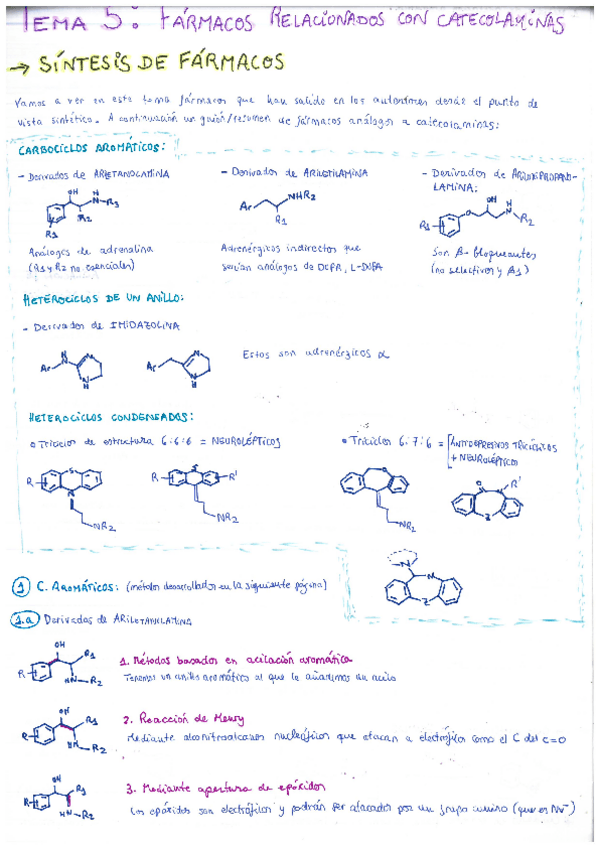 TEMA 5: FÁRMACOS RELACIONADOS CON CATECOLAMINAS
→ SÍNTESIS DE FÁRMACOS
Vamos a ver en este tema fármacos que han salido en los anteriores desde el punto de
vista sintético. A continuación un guión/resumen de fármacos análogos a catecolaminas:
CARBOCICLOS AROMÁTICOS:
- Derivados de ARIETANOLAMINA
- Derivador de ARILETILAMINA
- Derivador de ARILOXIPROPANO-
LAMINA:
OH H N R3 R2 R1
Ar NHR2 R1
R1 O OH H N R2
Análogos de adrenalina
(R1 y R2 no esenciales)
Adrenérgicos indirectos que
serían análogos de DOPA, L-DOPA
Son β-bloqueantes
(no selectivos y β1)
HETEROCICLOS DE UN ANILLO:
- Derivador de IMIDAZOLINA
Ar H N N N H
Ar N N H
Estos son adrenérgicos α
HETEROCICLOS CONDENSADOS:
o Triciclos de estructura 6:6:6 = NEUROLÉPTICOS
• Triciclos 6:7:6 = ANTIDEPRESIVOS TRICÍCLICOS
+ NEUROLÉPTICOS
R S N NR2
R S R' NR2
NR2
O R' N Z
N N Z
1 C. AROMÁTICOS: (métodos desarrollados en la siguiente página)
1.a Derivados de ARILETANOLAMINA
R OH R1 HN-R2
1. Métodos basados en acilación aromática
Tenemos un anillo aromático al que le añadimos un acilo
R OH R1 HN-R2
2. Reacción de Henry
Mediante nucleófilos que atacan a electrófilos como el C del C=O
R OH R1 HN-R2
3. Mediante apertura de epóxidos
Los epóxidos son electrófilos y podrán ser atacados por un grupo amino (que es Nu⁻)